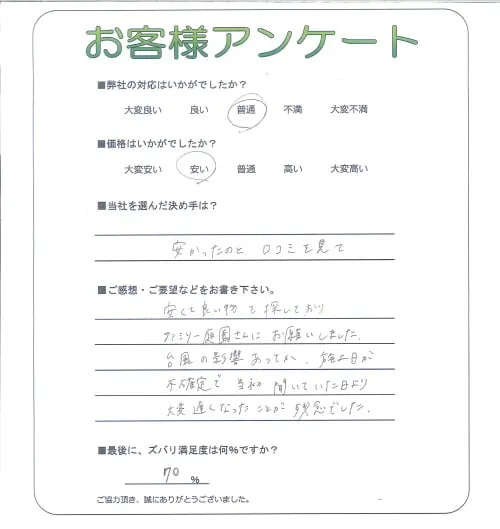 お客様アンケート
■弊社の対応はいかがでしたか？
大変良い 良い 普通 不満 大変不満
■価格はいかがでしたか？
大変安い 安い 普通 高い 大変高い
■当社を選んだ決め手は？
安かったのと 口コミを見て
■ご感想・ご要望などをお書き下さい。
安くて良い物を探しており
ファミリー庭園さんにお願いしました。
台風の影響あってか、施工日が
不確定で 当初 聞いていた日より
大変 遅くなったことが 残念でした。
■最後に、ズバリ満足度は何%ですか？
70 %
ご協力頂き、誠にありがとうございました。